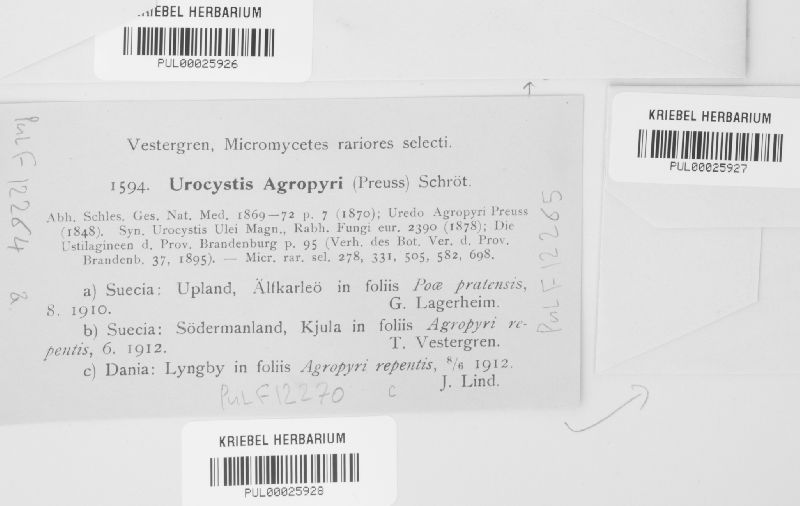 KRIEBEL HERBARIUM
PUL00025926
KRIEBEL HERBARIUM
PUL00025927
Vestergren, Micromycetes rariores selecti.
1594. Urocystis Agropyri (Preuss) Schröt.
Abh. Schles. Ges. Nat. Med. 1869—72 p. 7 (1870); Uredo Agropyri Preuss
(1848). Syn. Urocystis Ulei Magn., Rabh. Fungi eur. 2390 (1878); Die
Ustilagineen d. Prov. Brandenburg p. 95 (Verh. des Bot. Ver. d. Prov.
Brandenb. 37, 1895). — Micr. rar. sel. 278, 331, 505, 582, 698.
a) Suecia: Upland, Älfkarleö in foliis Poæ pratensis,
8. 1910. G. Lagerheim.
b) Suecia: Södermanland, Kjula in foliis Agropyri re-
pentis, 6. 1912. T. Vestergren.
c) Dania: Lyngby in foliis Agropyri repentis, 8/6 1912.
J. Lind.
PUL F 12264 a.
PUL F 12265
PUL F 12270 c
KRIEBEL HERBARIUM
PUL00025928